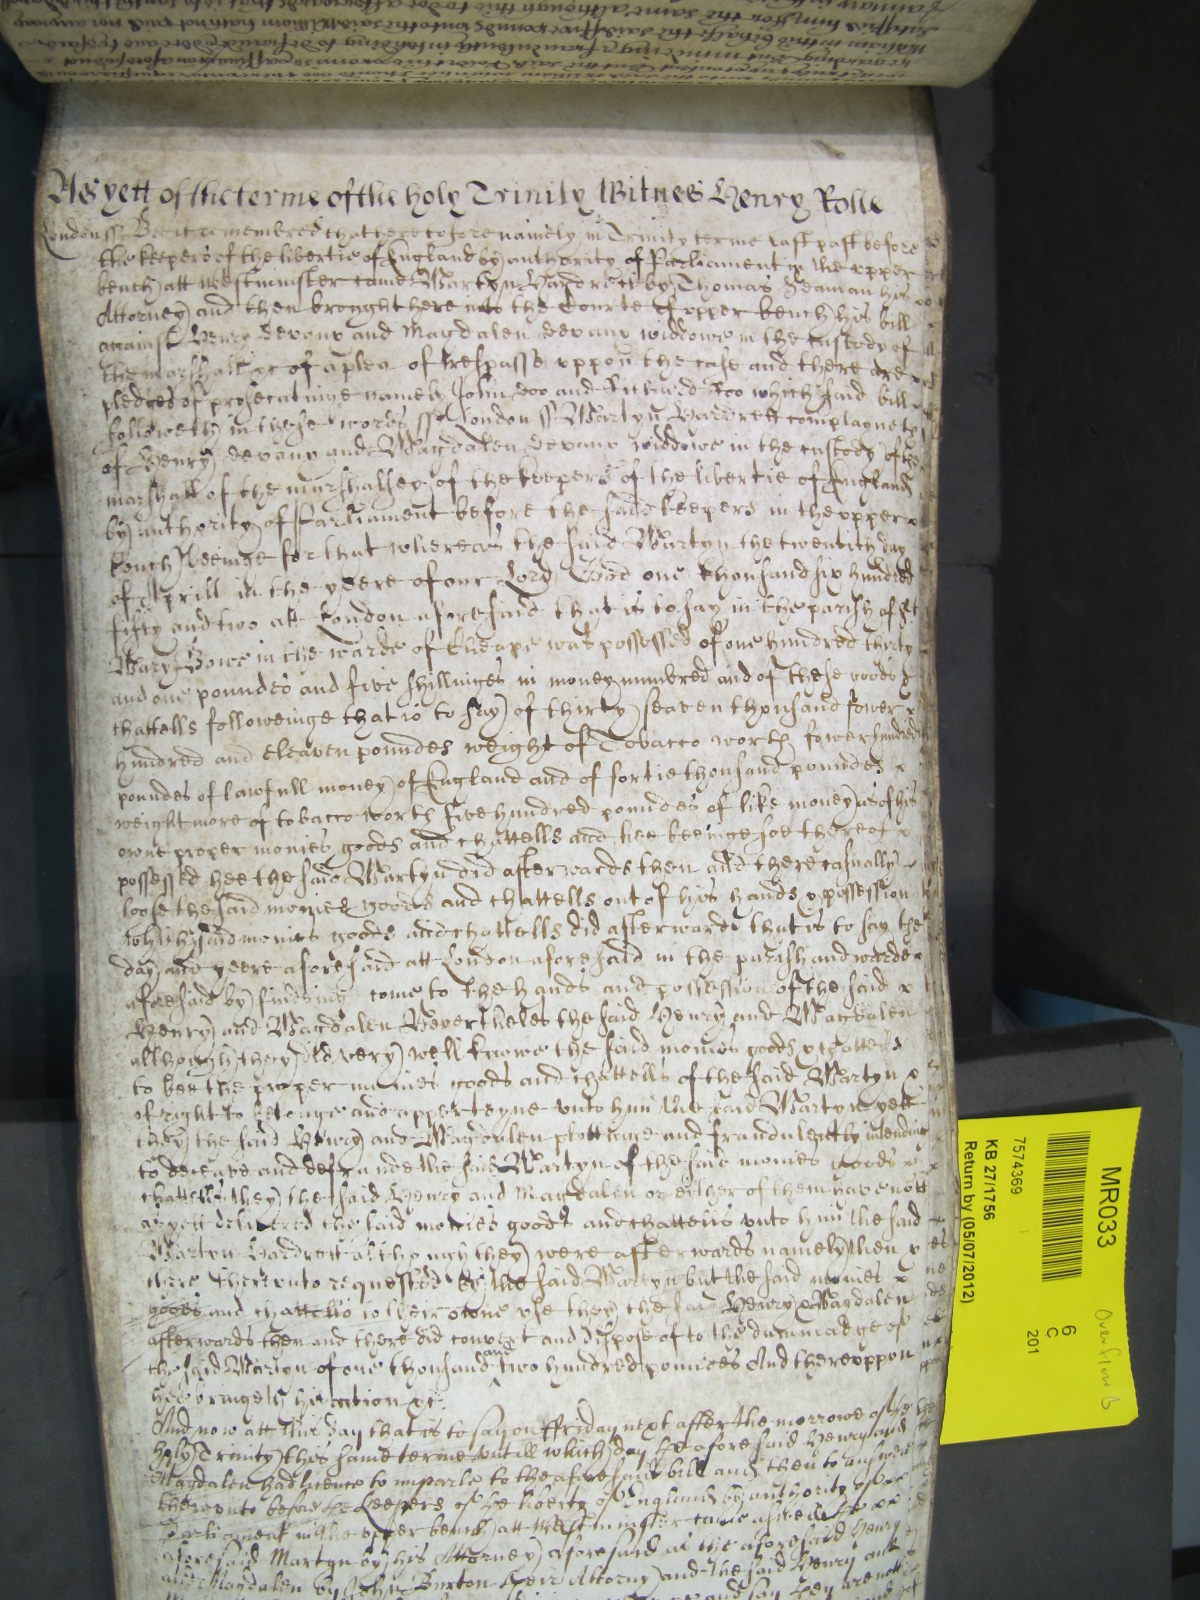 As yett of the terme of the holy Trinity Witnes Henry Rolle
London ss Be it remembred that heretofore namely in Trinity terme last past before
the keepers of the libertie of England by authority of Parliament in the upper
bench att Westminster came Martyn Hardrett by Thomas Seaman his
Attorney and then brought here into the Courte of upper bench his bill
against Henry Devaux and Magdalen Devaux widdowe in the custody of
the marshall &c of a plea of trespasse uppon the case and there are x
pledges of prosecutinge namely John Doo and Richard Roo which said bill x
followeth in these words ss London ss Martyn Hardrett complayneth
of Henry Devaux and Magdalen Devaux widdowe in the custody of the
marshall of the marshalsey of the keepers of the libertie of England
by authority of Parliament before the said keepers in the upper x
bench beeinge for that whereas the said Martyn the twentith day
of Aprill in the yeere of our Lord God one thousand six hundred
fifty and two att London aforesaid that is to say in the parish of St
Mary Bowe in the warde of Cheape was possessed of one hundred thirty
and one poundes and five shillinges in money numbred and of these goods &
chattells followeinge that is to say of thirty seaven thousand fower x
hundred and eleaven poundes weight of Tobacco worth fower hundred
poundes of lawfull money of England and of fortie thousand poundes x
weight more of tobacco worth five hundred poundes of like money as of his
owne proper monies goods and chattells and hee beeinge soe thereof x
possessed hee the said Martyn did afterwards then and there casually
loose the said monies goods and chattells out of his hands & possession
which said monies goods and chattells did afterwards that is to say the
day and yeere aforesaid att London aforesaid in the parish and warde x
aforesaid by findinge come to the hands and possession of the said x
Henry and Magdalen Neverthelesse the said Henry and Magdalen
although they did very well knowe the said monies goods & chattells
to bee the proper monies goods and chattells of the said Martyn &
of right to belonge and apperteyne unto him the said Martyn yett
they the said Henry and Magdalen plottinge and fraudulently intending
to deceave and defraude the said Martyn of the said monies goods &
chattells they the said Henry and Magdalen or either of them have nott
as yett delivered the said monies goods and chattells unto him the said
Martyn Hardrett although they were afterwards namely then &
there thereunto requested by the said Martyn but the said monies x
goods and chattells to their owne use they the said Henry & Magdalen
afterwards then and there did convert and dispose of to the dammadge of
the said Martyn of one thousand and two hundred poundes And thereuppon
hee bringeth his action &c
And now att this day that is to say on Friday next after the morrowe of the
holy Trinity this same terme untill which day the aforesaid Henry and
Magdalen had licence to imparle to the aforesaid bill and then to answere
thereunto before the keepers of the liberty of England by authority of xx
Parliament in the upper bench att Westminster came aswell the xx
aforesaid Martyn by his Attorney aforesaid as the aforesaid Henry
and Magdalen by John Burton their Attorny and the said Henry and
say they are nott
MR033
7574369
KB 27/1756
Return by (05/07/2012)
6
C
201
Overflow B